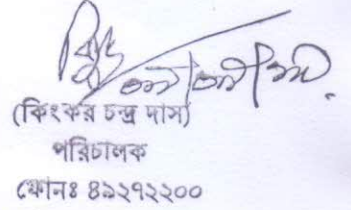 (কিংকর চন্দ্র দাস)
পরিচালক
ফোনঃ ৪৯২৭২২০০